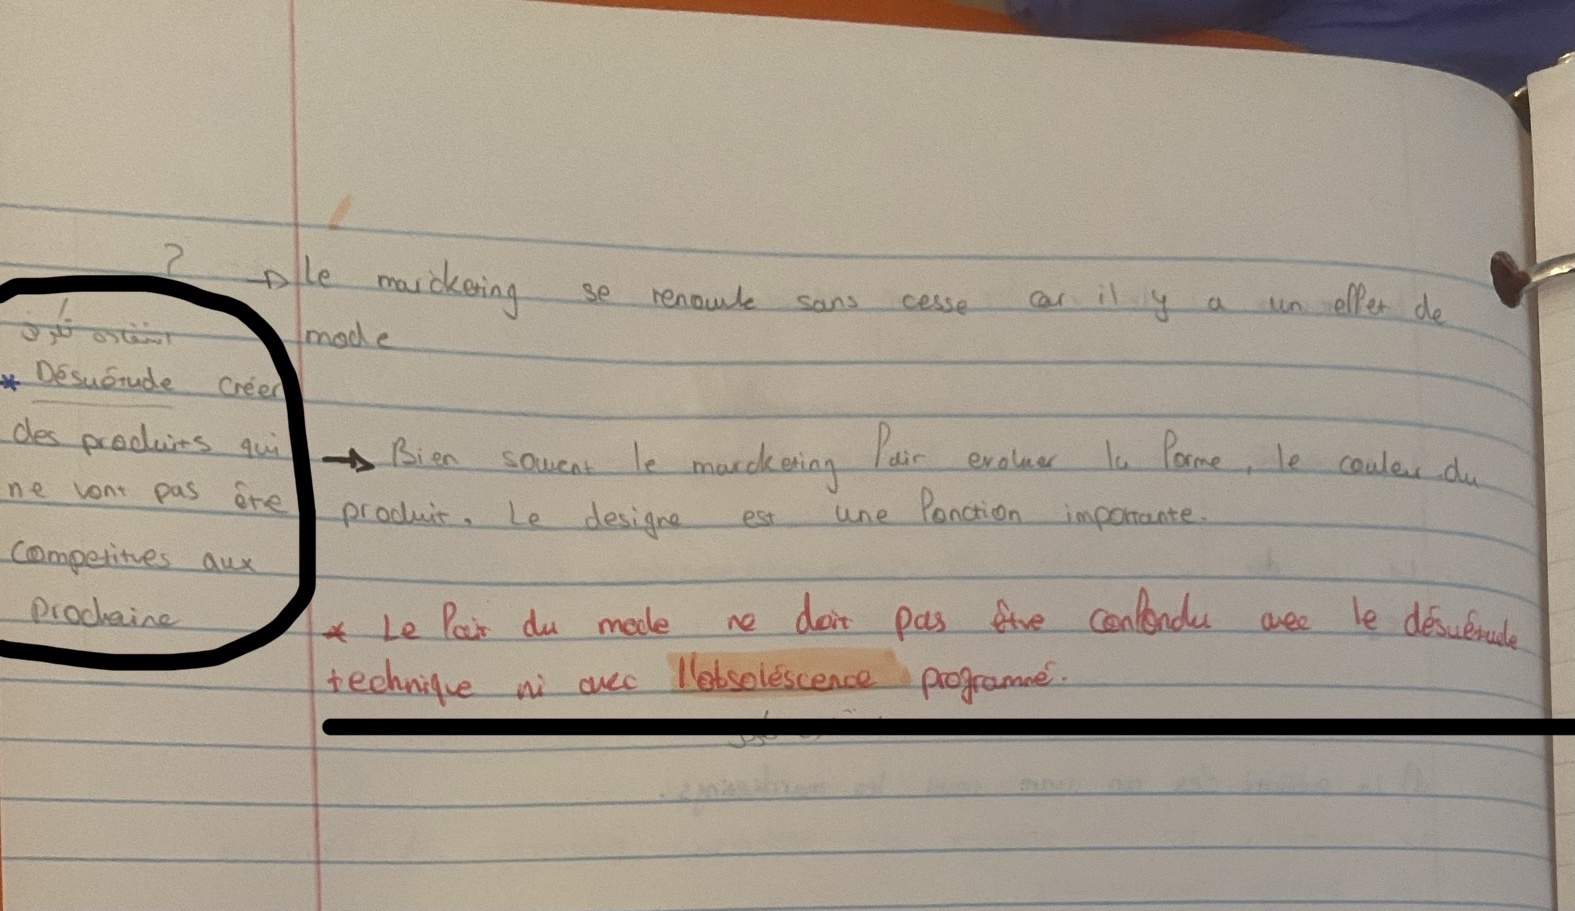 ?
→ Le marckering se renouvle sans cesse car il y a un effet de
mode
* Désuétude créer
des produits qui
ne vont pas être
Competitives aux
prochaine
→ Bien souvent le marcketing fair evoluer la forme, le couleu du
produit. Le designe est une fonction importante.
* Le fait du mode ne doit pas être confondu avec le désuétude
technique ni avec l'obsoléscence programmé.